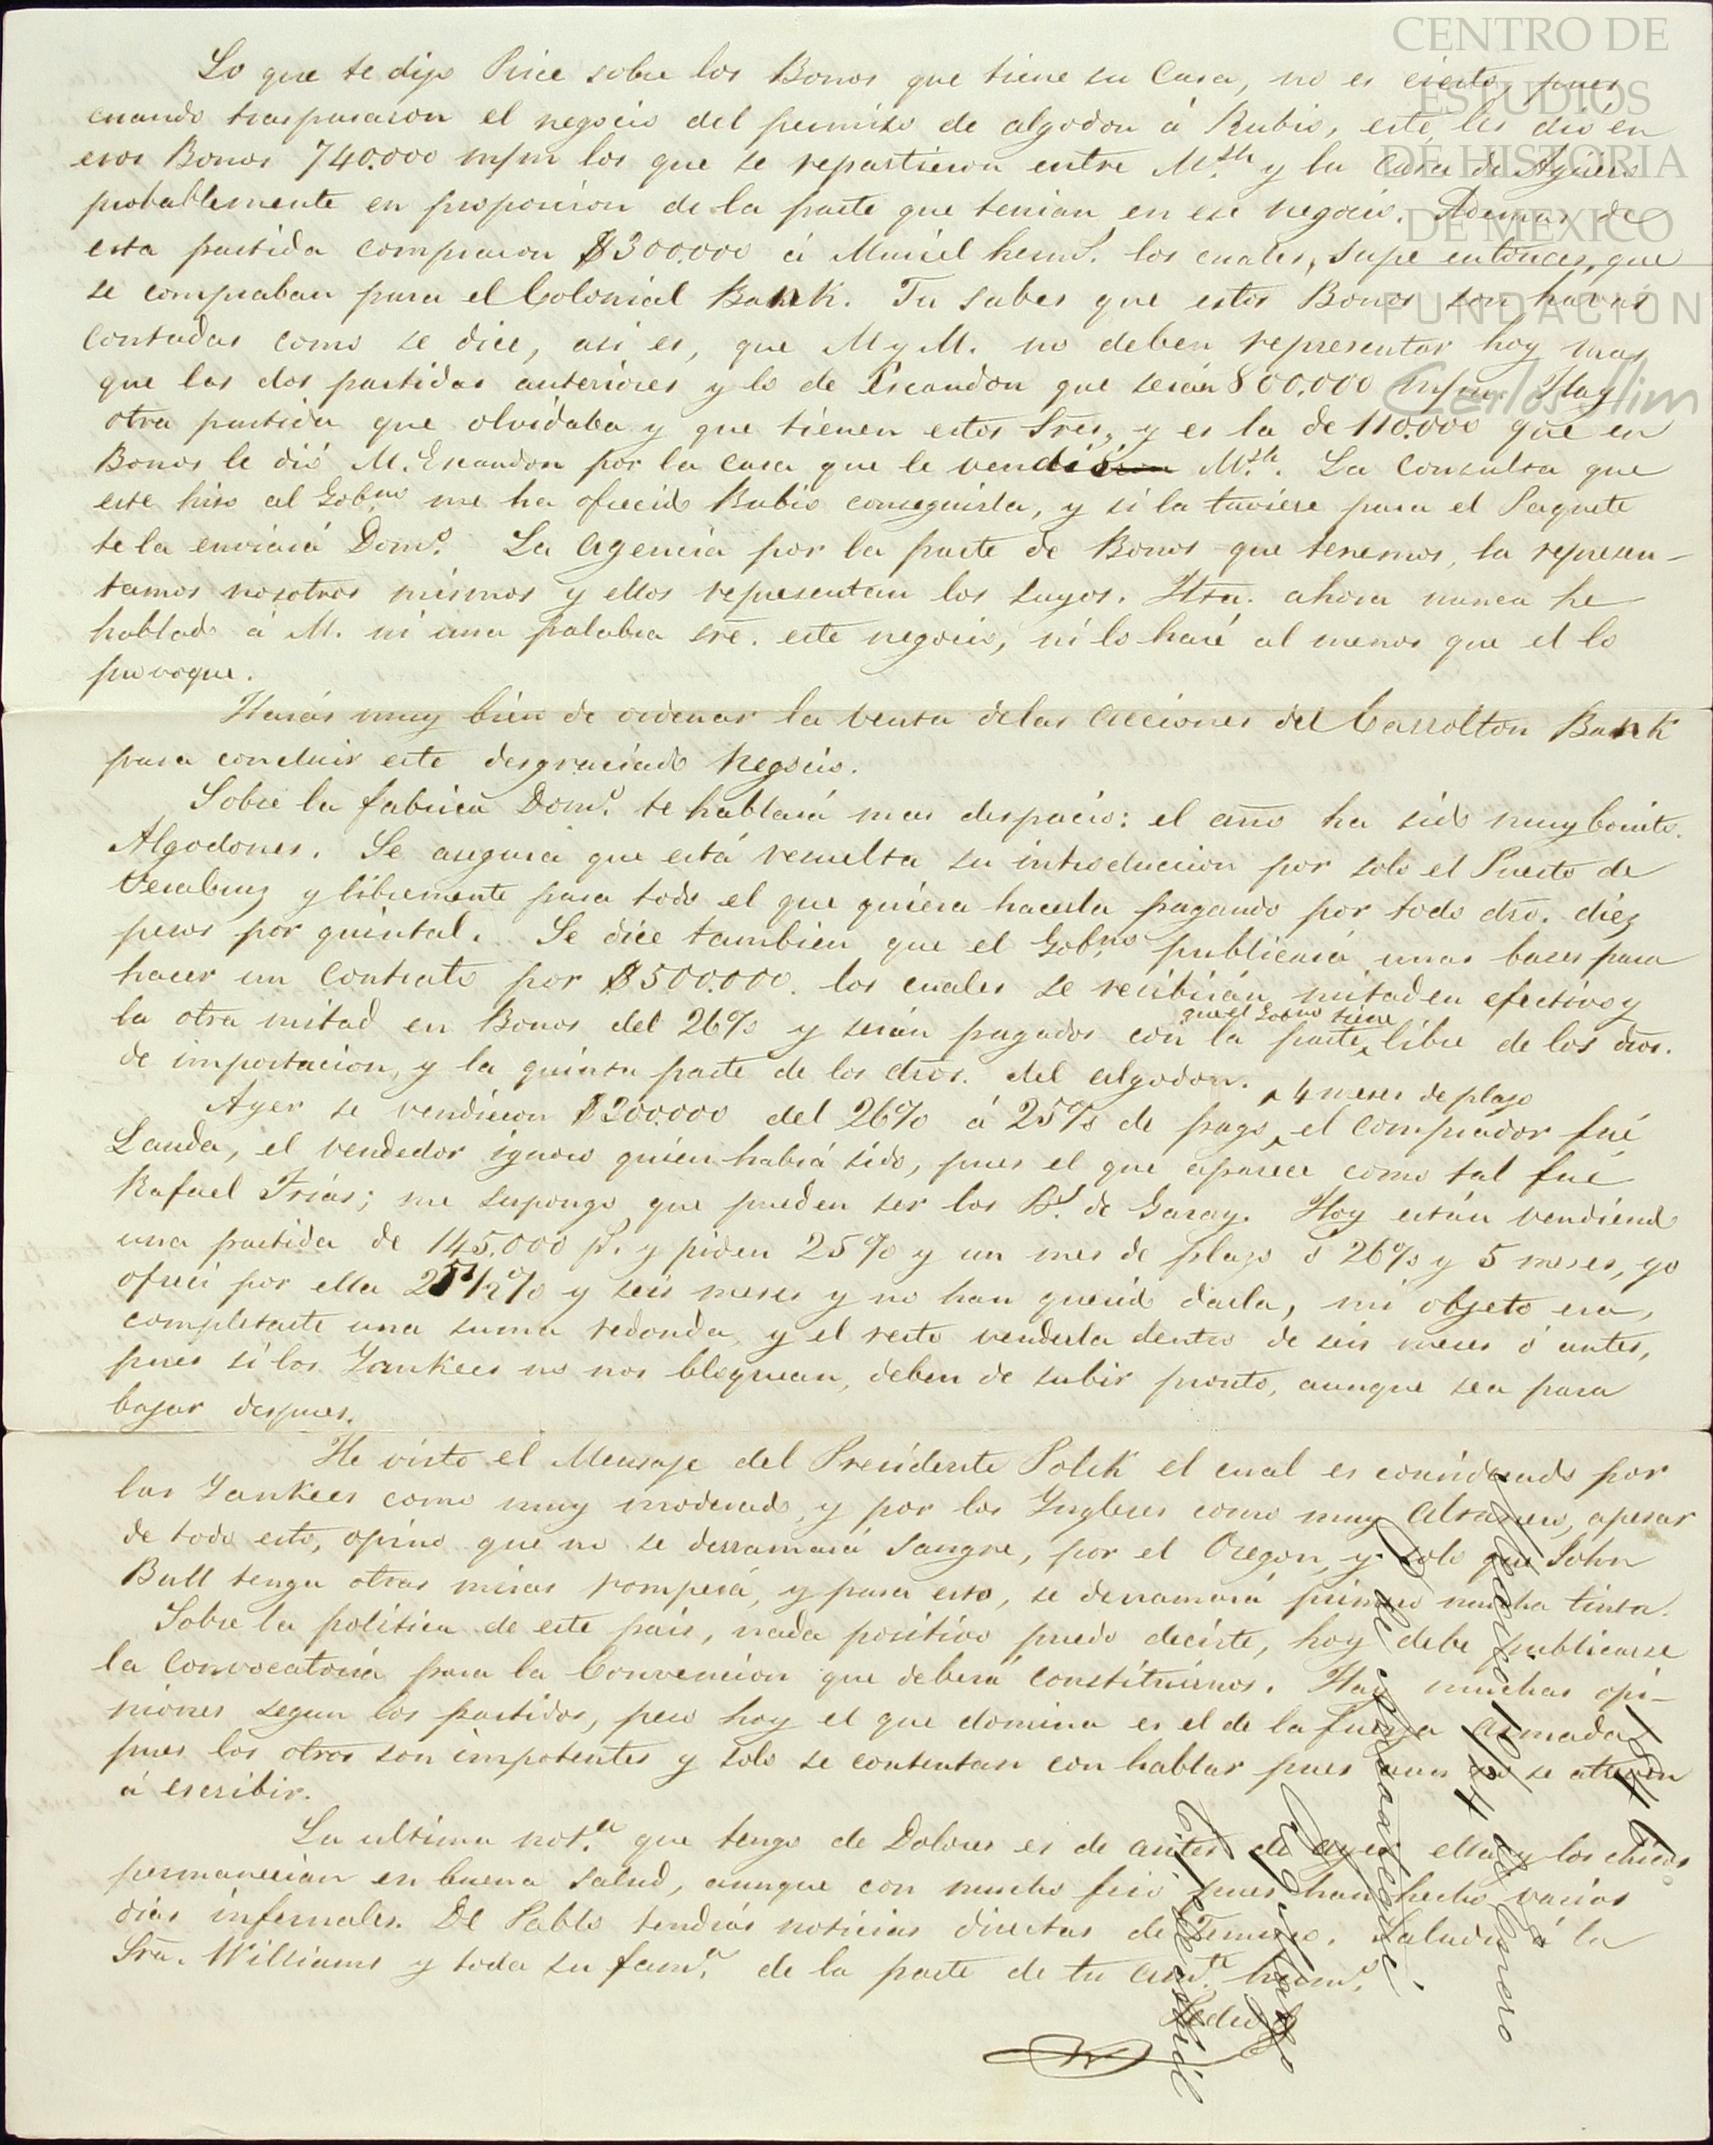 Lo que te dijo Price sobre los Bonos que tiene su Casa, no es cierto, pues
cuando traspasaron el negocio del permiso de algodon á Rubio, este les dió en
esos Bonos 740.000 m/m los que se repartieron entre M.sh y la Casa de Agüero
probablemente en proporcion de la parte que tenian en ese negocio. Ademas de
esta partida compraron $300.000 á Muriel herms. los cuales, supe entonces, que
se compraban para el Colonial Bank. Tu sabes que estos Bonos son havas
contadas como se dice, asi es, que M y M. no deben representar hoy mas
que las dos partidas anteriores y lo de Escandon que serán 800.000 m/m. Hay
otra partida que olvidaba y que tienen estos Sres, y es la de 110.000 que en
Bonos le dió M. Escandon por la casa que le vendió M.sh. La Consulta que
este hizo al Gobno. me ha ofrecido Rubio conseguirla, y si la tuviere para el Paquete
te la enviará Domo. La agencia por la parte de Bonos que tenemos, la represen-
tamos nosotros mismos y ellos representan los suyos. Hta. ahora nunca he
hablado á M. ni una palabra sre. este negocio, ni lo haré al menos que el lo
provoque.
Harás muy bien de ordenar la venta de las acciones del Carrolton Bank
para concluir este desgraciado negocio.
Sobre la fabrica Domo. te hablará mas despacio: el año ha sido muy bonito.
Algodones. Se asegura que está resuelta su introduccion por solo el Puerto de
Veracruz y libremente para todo el que quiera hacerla pagando por todo dro. diez
pesos por quintal. Se dice tambien que el Gobno. publicará unas bases para
hacer un Contrato por $500.000. los cuales se recibirán mitad en efectivo y
la otra mitad en Bonos del 26% y serán pagados con la parte que el Gobno tiene libre de los dros.
de importacion, y la quinta parte de los dros. del algodon.
Ayer se vendieron $200.000 del 26% á 25% de pago a 4 meses de plazo el comprador fué
Landa, el vendedor ignoro quien habrá sido, pues el que aparece como tal fué
Rafael Frias; me supongo que pueden ser los Bs. de Garay. Hoy están vendiendo
una partida de 145.000 ps. y piden 25% y un mes de plazo ó 26% y 5 meses, yo
ofreci por ella 25 1/2% y seis meses y no han querido darla, mi objeto era,
completarte una suma redonda, y el resto venderla dentro de seis meses ó antes,
pues si los Yankees no nos bloquean, deben de subir pronto, aunque sea para
bajar despues.
He visto el Mensaje del Presidente Polck el cual es considerado por
los Yankees como muy moderado, y por los Yngleses como muy altanero, apesar
de todo esto, opino que no se derramará sangre, por el Oregon, y solo que John
Bull tenga otras miras romperá, y para esto, se derramará primero mucha tinta.
Sobre la politica de este pais, nada positivo puedo decirte, hoy debe publicarse
la convocatoria para la Convencion que deberá constituirnos. Hay muchas opi-
niones segun los partidos, pero hoy el que domina es el de la fuerza armada
pues los otros son impotentes y solo se contentan con hablar pues aun no se atreven
á escribir.
La ultima nota. que tengo de Dolores es de antes de ayer ella y los chicos
permanecian en buena salud, aunque con mucho frio pues han hecho varios
dias infernales. De Pablo tendrás noticias directas de Temisco. Saluda á la
Sra. Williams y toda su fama. de la parte de tu amte. hermo.
Pedro
1846.
Mexico 1º/24 de Enero
CENTRO DE
ESTUDIOS
DE HISTORIA
DE MEXICO
FUNDACIÓN
Carlos Slim